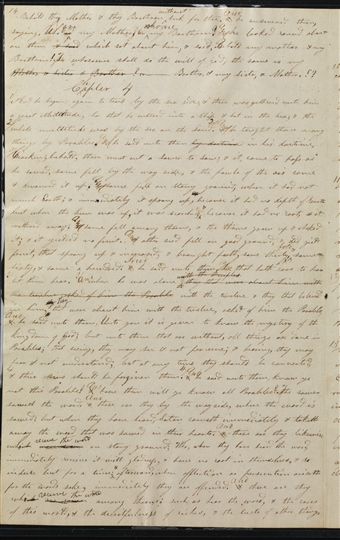 14 Behold thy Mother & thy Brethren without seek for thee, & he answered them,
saying, who is my Mother, or my Brethren, & he looked round about
on them which sat about him, & said, behold my mother & my
Brethren, for whosoever shall do the will of God, the same is my
Brother, & my sister, & Mother.
Chapter 4
And he began again to teach by the sea side, & there was gathered unto him
a great multitude, so that he entered into a ship, & sat in the sea, & the
whole multitude was by the sea on the land, & he taught them many
things by Parables, & said unto them in his doctrine,
Hearken, behold, there went out a sower to sow, & it came to pass as
he sowed, some fell by the way side, & the fowls of the air came
& devoured it up, & some fell on stony ground, where it had not
much earth, & immediately it sprang up, because it had no depth of earth
but when the sun was up, it was scorched, & because it had no root, it
withered away, & some fell among thorns, & the thorns grew up & choked
it, & it yielded no fruit, & other fell on good ground, & did yield
fruit, that sprang up & increased, & brought forth, some thirty, some
sixty, & some a hundred, & he said unto them, he that hath ears to hear
let him hear. & when he was alone
with the twelve, & they that believed
in him, were about him with the twelve, asked of him the Parable,
& he said unto them, Unto you it is given to know the mystery of the
Kingdom of God, but unto them that are without, all things are done in
Parables, that seeing, they may see & not perceive, & hearing, they may
hear & not understand, lest at any time they should be converted
& their sins should be forgiven them, & he said unto them, know ye
not this Parable? & how then will ye know all Parables? the sower
soweth the word, & these are they by the way side, where the word is
sowed, but when they have heard, Satan cometh immediately & taketh
away the word that was sowed in their hearts, & these are they likewise
which receive the word on stony ground, who, when they have heard the word,
immediately receive it with gladness, & have no root in themselves, & so
endure but for a time, & afterward when affliction or persecution ariseth
for the word's sake, immediately they are offended, & these are they
which receive the word among thorns, such as hear the word, & the cares
of this world, & the deceitfulness of riches, & the lusts of other things